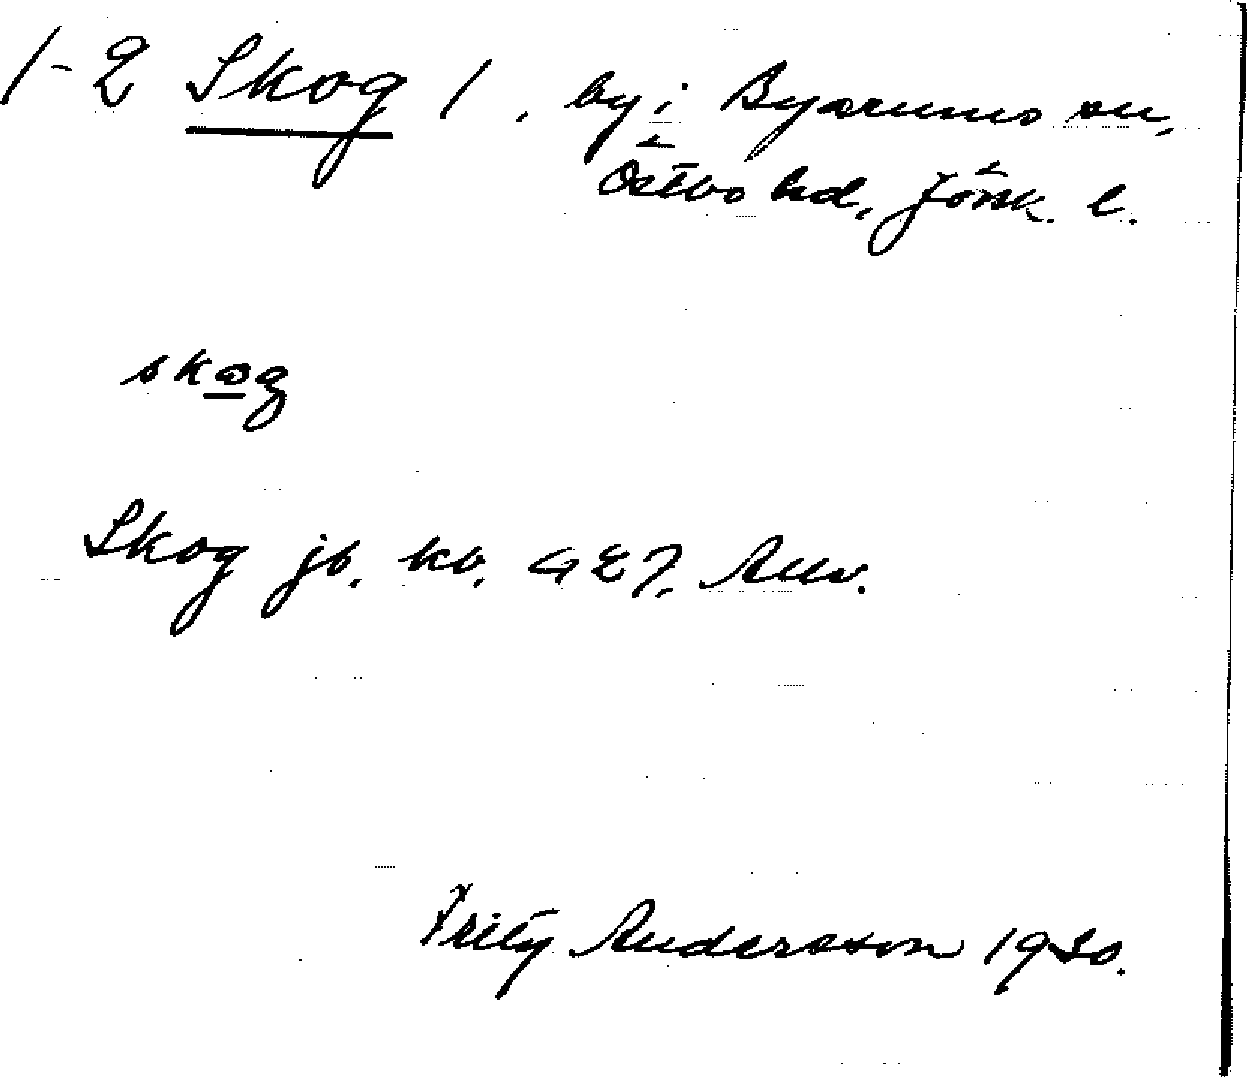 1-2 Skog 1, by i Byarums sn,
Östbo hd, Jönk. l.
skog
Skog jb. kb. GEK, Allv.
Fritz Andersson 1930.